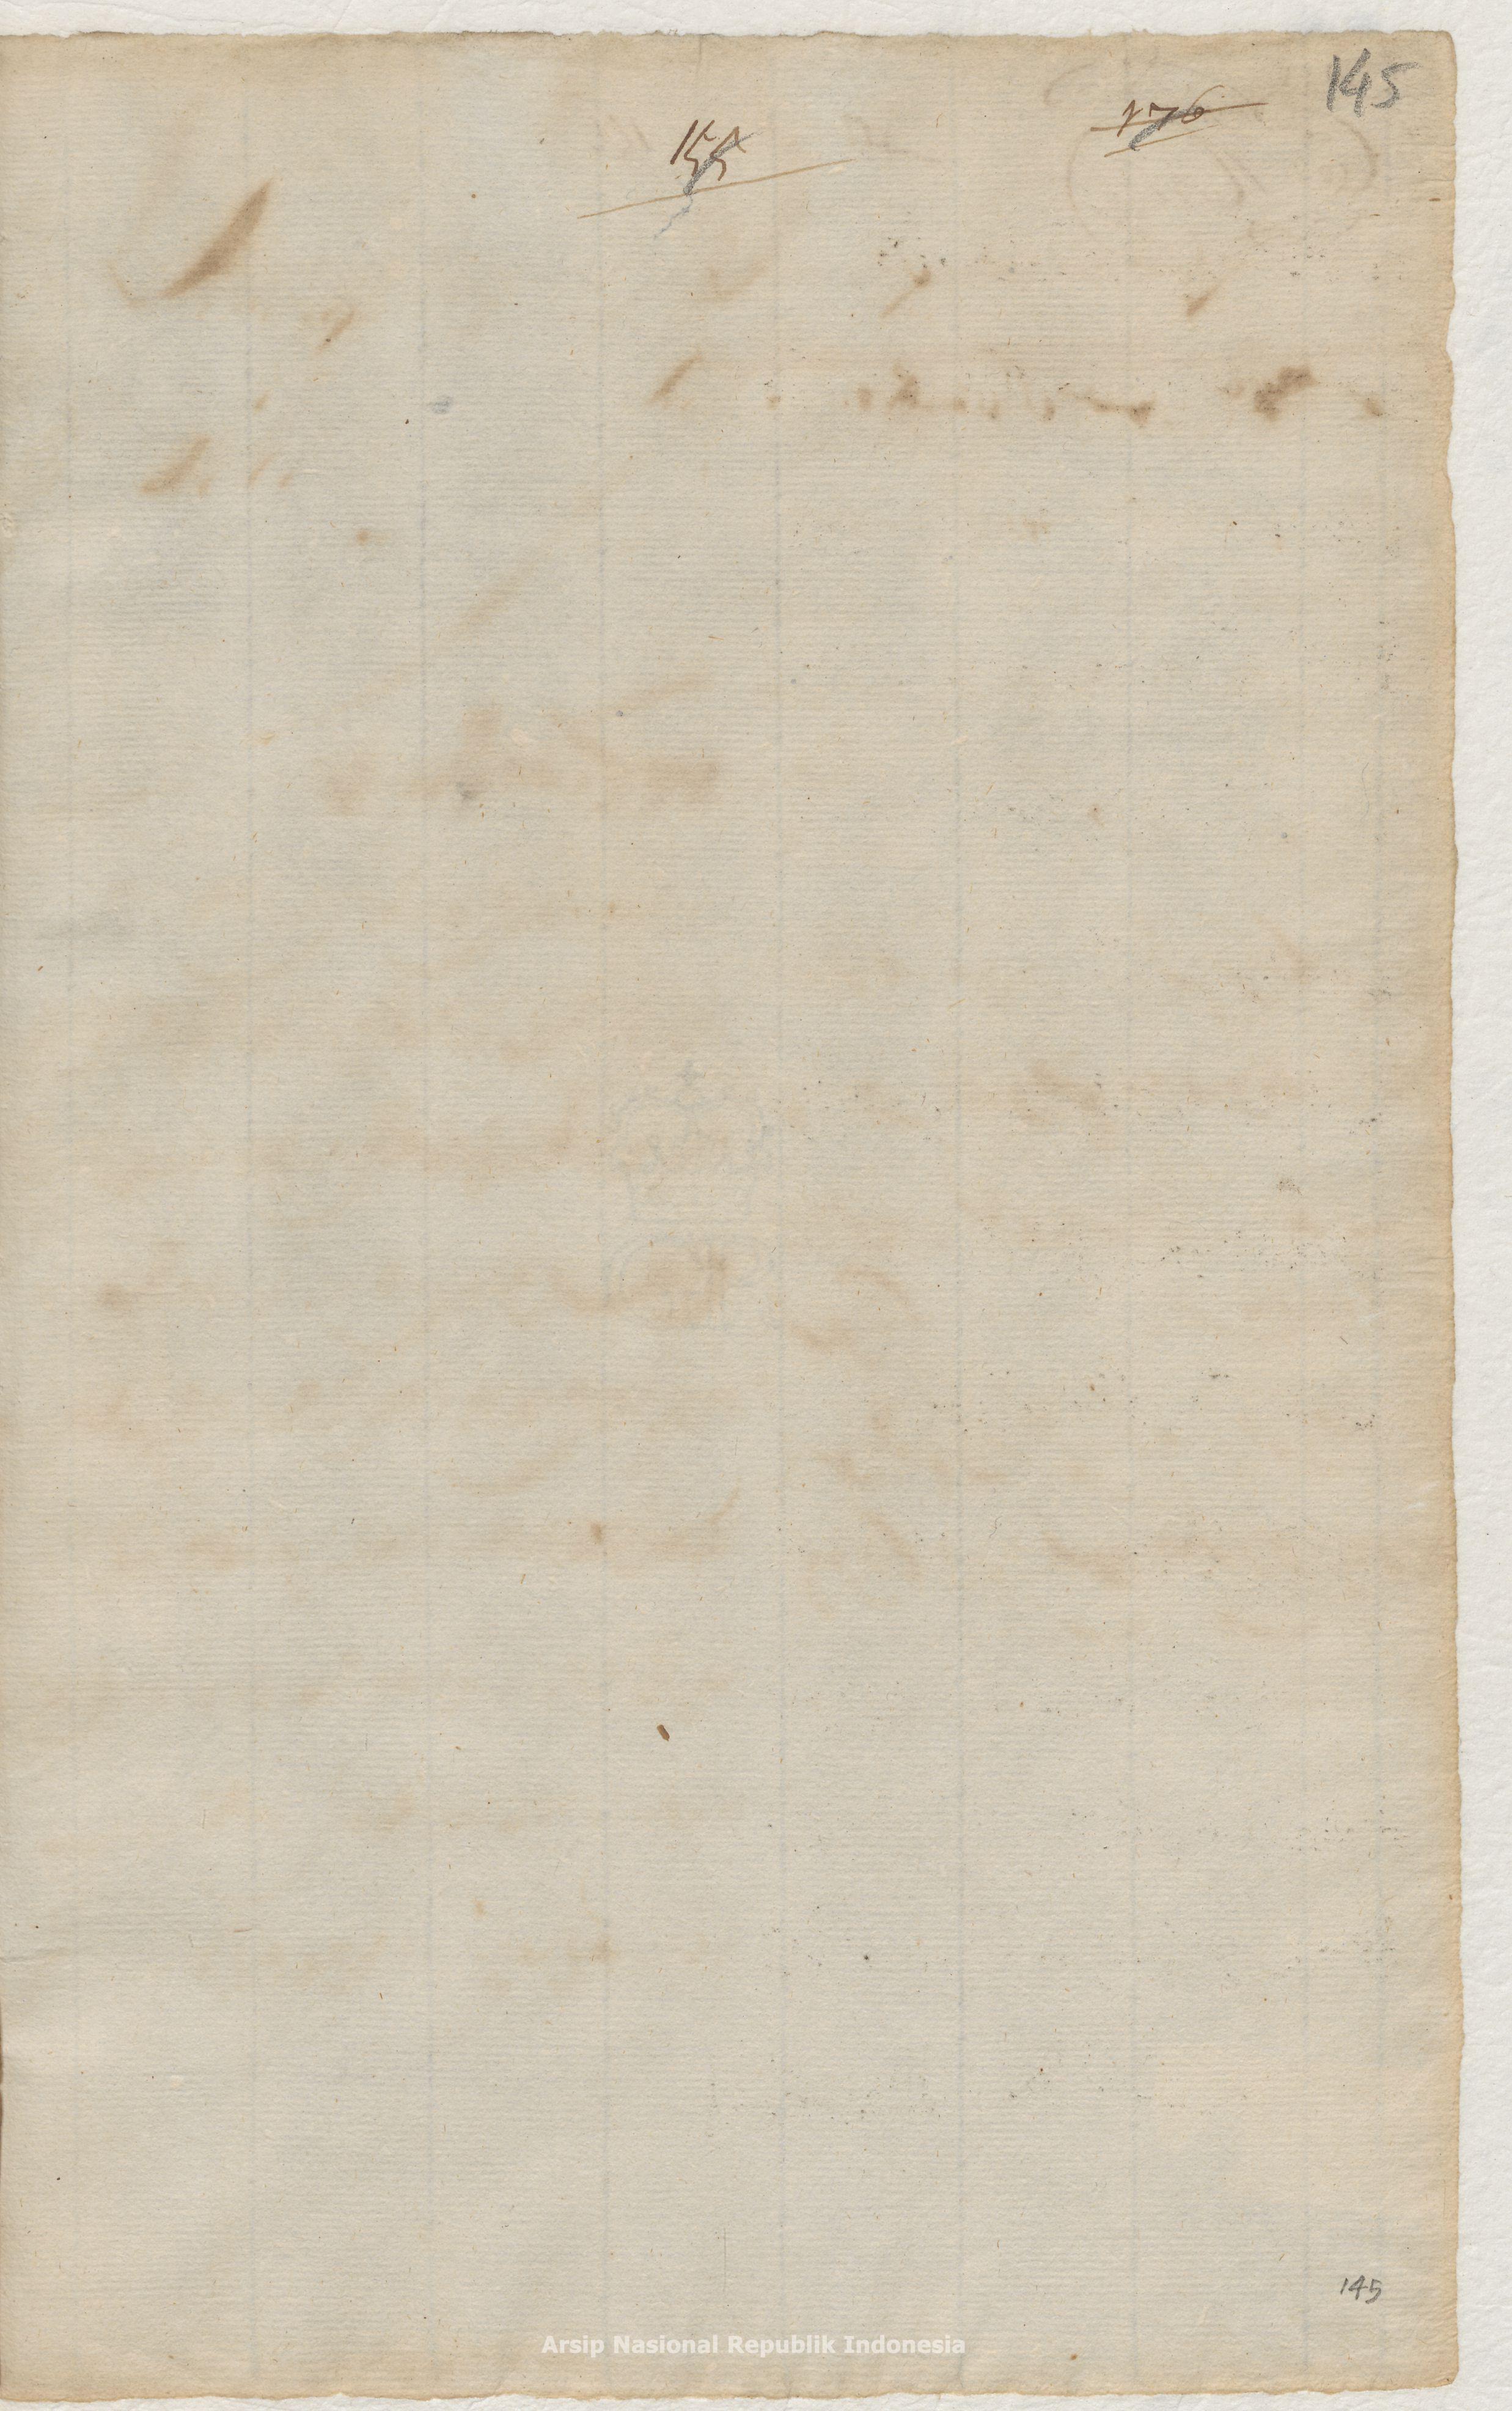 145
176
155
145
Arsip Nasional Republik Indonesia